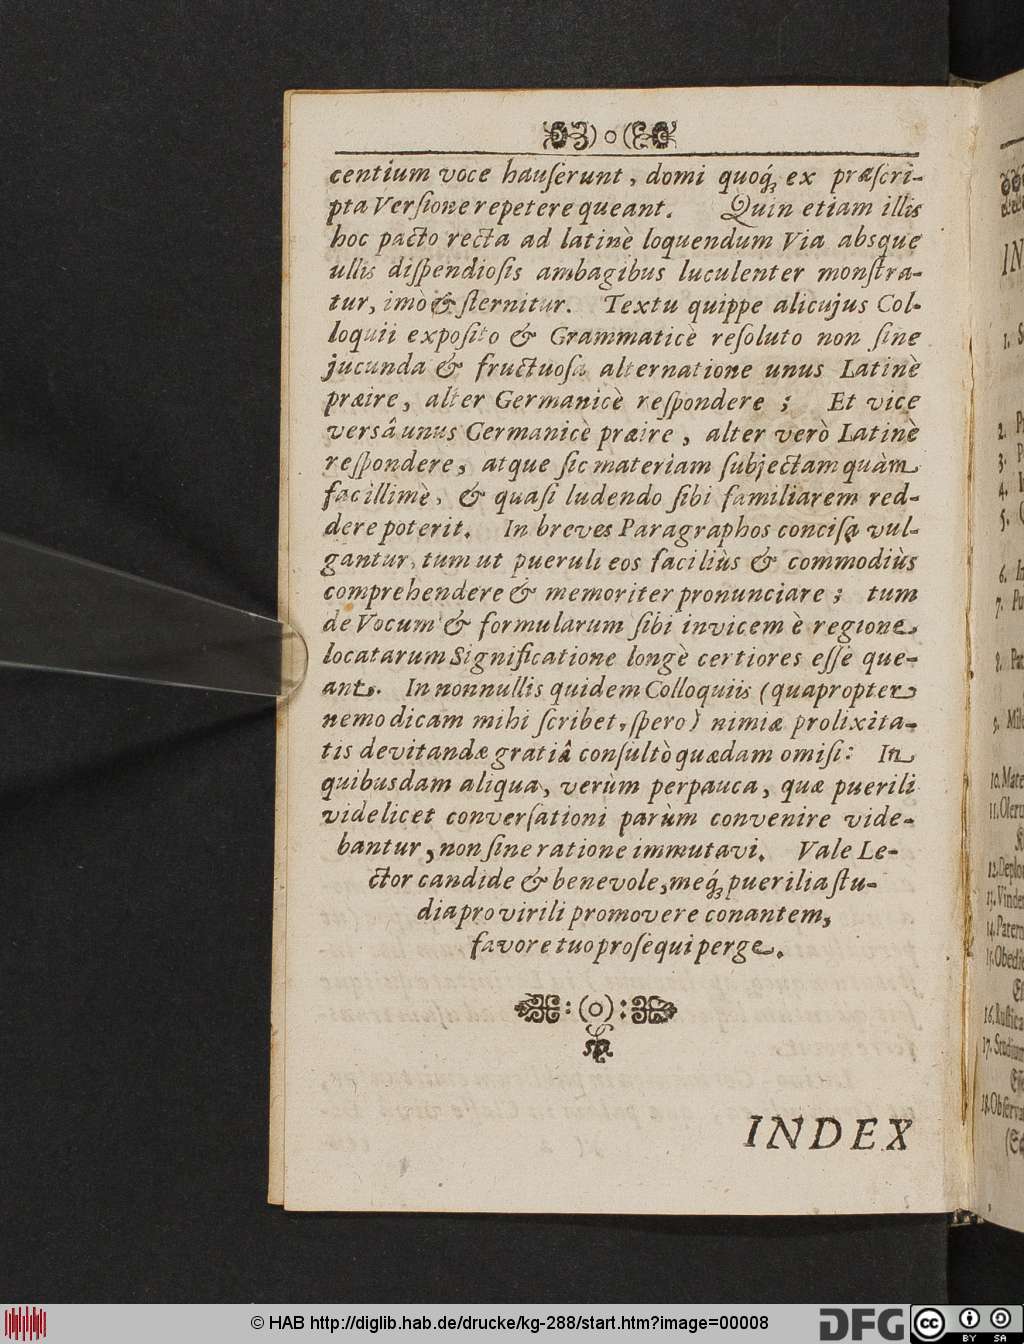 centium voce hauſerunt, domi quoq́ꝫ ex præſcri-
pta Verſione repetere queant. Quin etiam illis
hoc pacto recta ad latinè loquendum Via absque
ullis diſpendioſis ambagibus luculenter monſtra-
tur, imò & ſternitur. Textu quippe alicujus Col-
loquii expoſito & Grammaticè reſoluto non ſine
jucunda & fructuoſa alternatione unus Latinè
præire, alter Germanicè reſpondere ; Et vice
versâ unus Germanicè præire, alter verò Latinè
reſpondere, atque ſic materiam ſubjectam quàm
facillimè, & quaſi ludendo ſibi familiarem red-
dere poterit. In breves Paragraphos conciſa vul-
gantur, tum ut pueruli eos faciliùs & commodiùs
comprehendere & memoriter pronunciare ; tum
de Vocum & formularum ſibi invicem è regione
locatarum Significatione longè certiores eſſe que-
ant. In nonnullis quidem Colloquiis (quapropter
nemo dicam mihi ſcribet, ſpero) nimiæ prolixita-
tis devitandæ gratiâ conſultò quædam omiſi: In
quibusdam aliqua, verùm perpauca, quæ puerili
videlicet converſationi parùm convenire vide-
bantur, non ſine ratione immutavi. Vale Le-
ctor candide & benevole, meq́ꝫ puerilia ſtu-
dia pro virili promovere conantem,
favore tuo proſequi perge.
INDEX
IN
1. S
2. P
3. P
4.
5.
6. In
7. Pu
8. Pat
9. Mil
10. Mate
11. Oleru
12. Deplo
13. Vinde
14. Patern
15. Obedie
16. Ruſtica
17. Studium
18. Obſerva
© HAB http://diglib.hab.de/drucke/kg-288/start.htm?image=00008
DFG
cc
BY SA